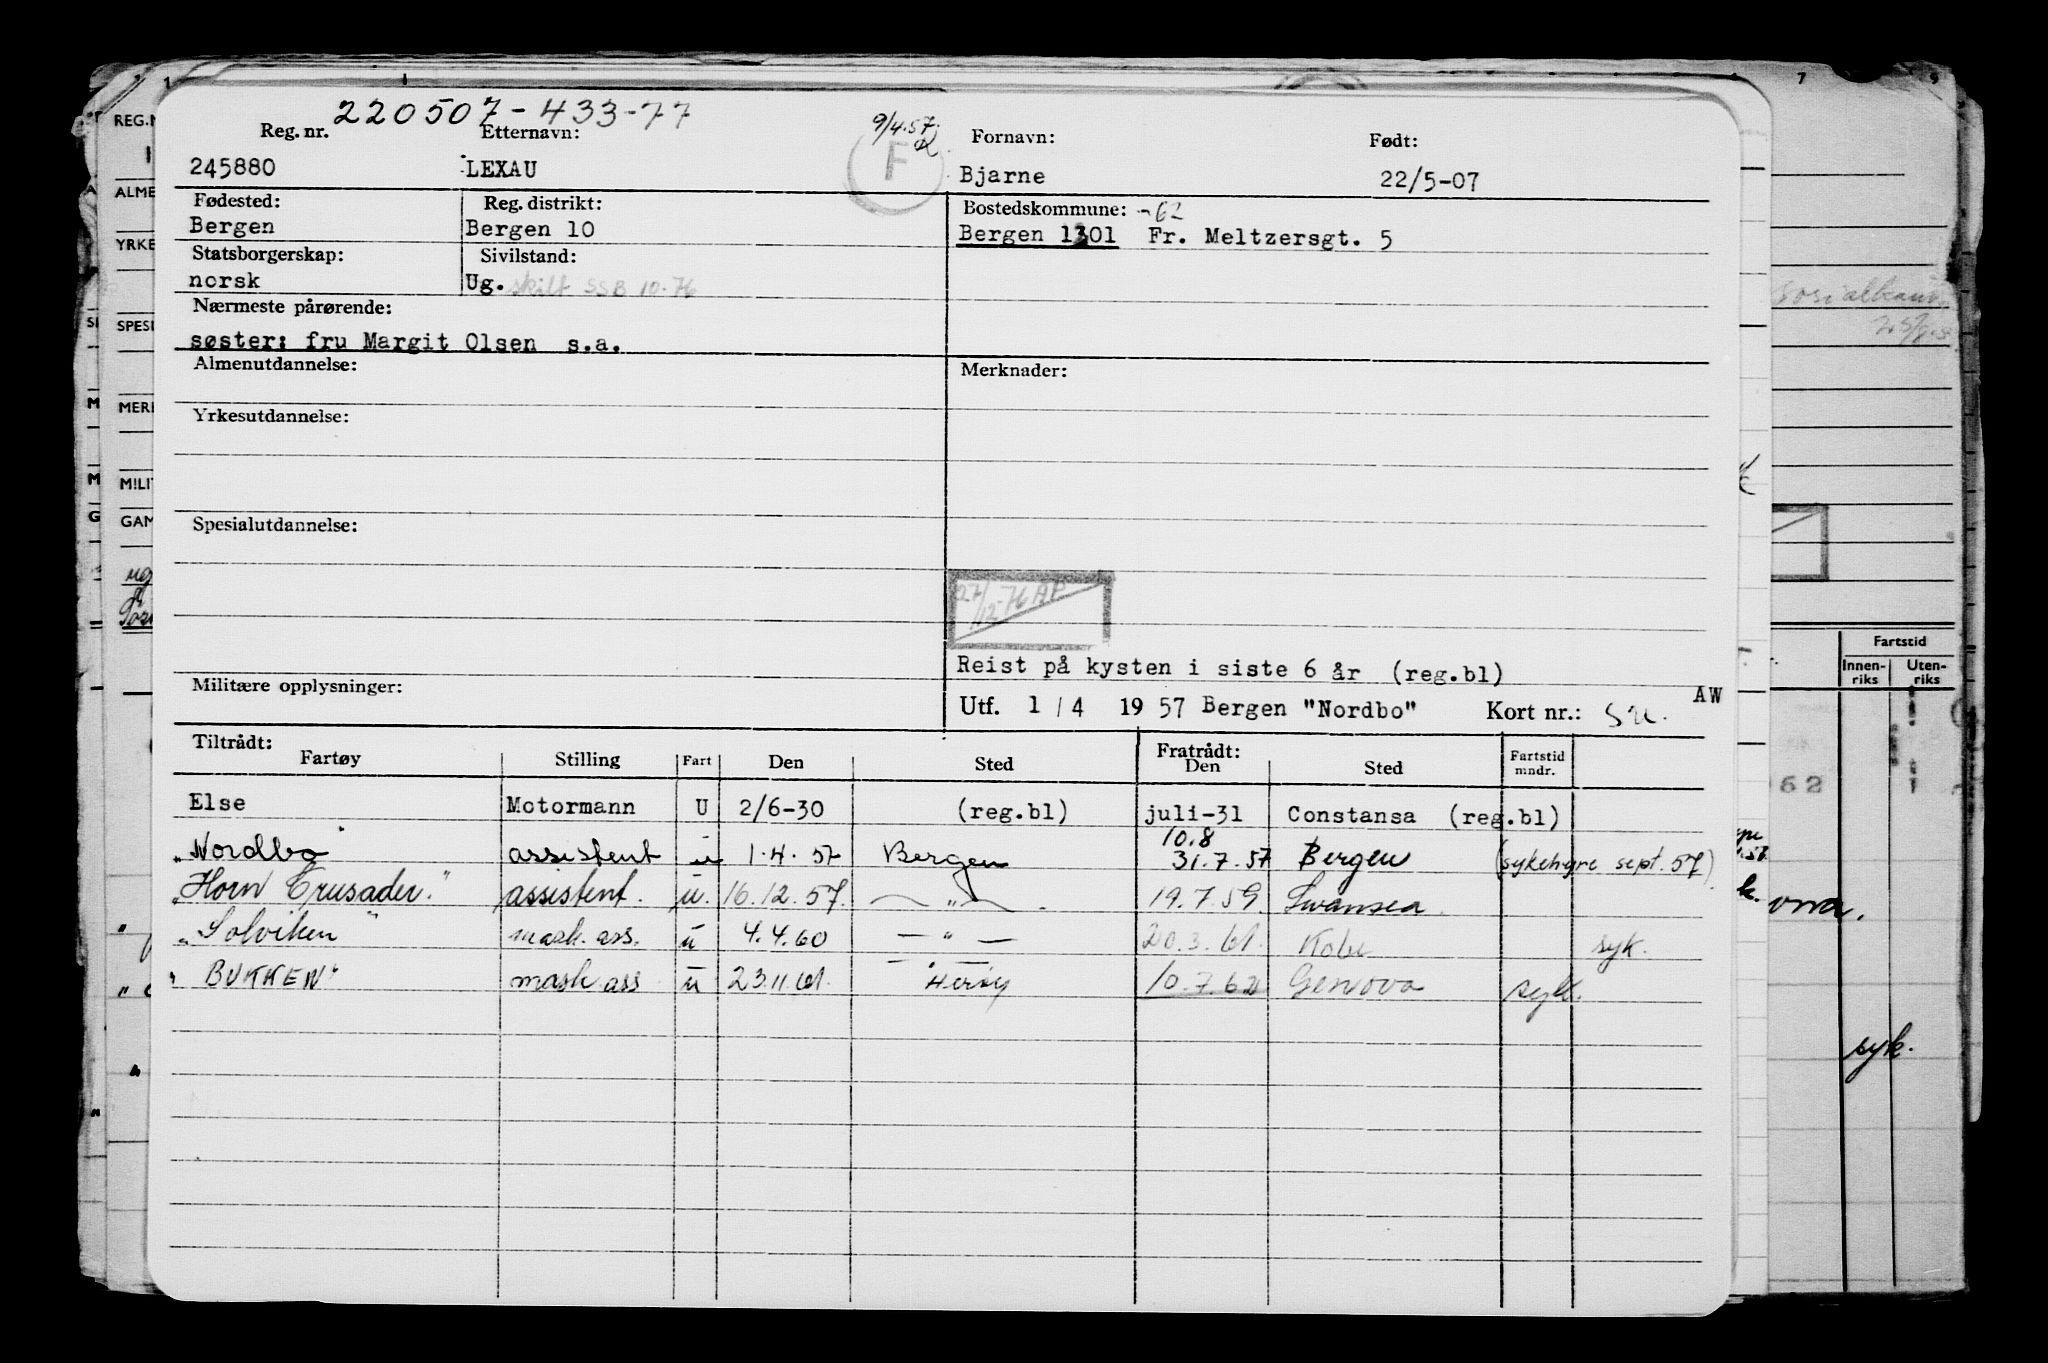 220507-433-77
Reg. nr. Etternavn: 9/4.57. Fornavn: Født:
245880 LEXAU F Bjarne 22/5-07
Fødested: Reg. distrikt: Bostedskommune: -62
Bergen Bergen 10 Bergen 1301 Fr. Meltzersgt. 5
Statsborgerskap: Sivilstand:
norsk Ug. skilt SSB 10.76
Nærmeste pårørende:
søster: fru Margit Olsen s.a.
Almenutdannelse: Merknader:
Yrkesutdannelse:
Spesialutdannelse:
27/12-76 AP
Reist på kysten i siste 6 år (reg.bl)
Militære opplysninger: Utf. 1 / 4 19 57 Bergen "Nordbo" Kort nr.: AW
Tiltrådt: Fratrådt:
Fartøy Stilling Fart Den Sted Den Sted Fartstid mndr.
Else Motormann U 2/6-30 (reg.bl) juli-31 Constansa (reg.bl)
10.8
"Nordbo" assistent u 1.4.57 Bergen 31.7.57 Bergen (sykehyre sept. 57)
"Horn Crusader." assistent. u. 16.12.57. — " — . 19.7.59. Swansea.
"Solviken" mask. ass. u 4.4.60 — " — 20.3.61. Kobe syk.
"BUKKEN" mask. ass u 23.11.61. Herøy 10.7.62 Genova syk.
REG.N
ALME
YRKE
SPESI
MERI
MILIT
GAM
7 9
sosialkaun
Fartstid
Innen-riks Uten-riks
62
ova.
syk.